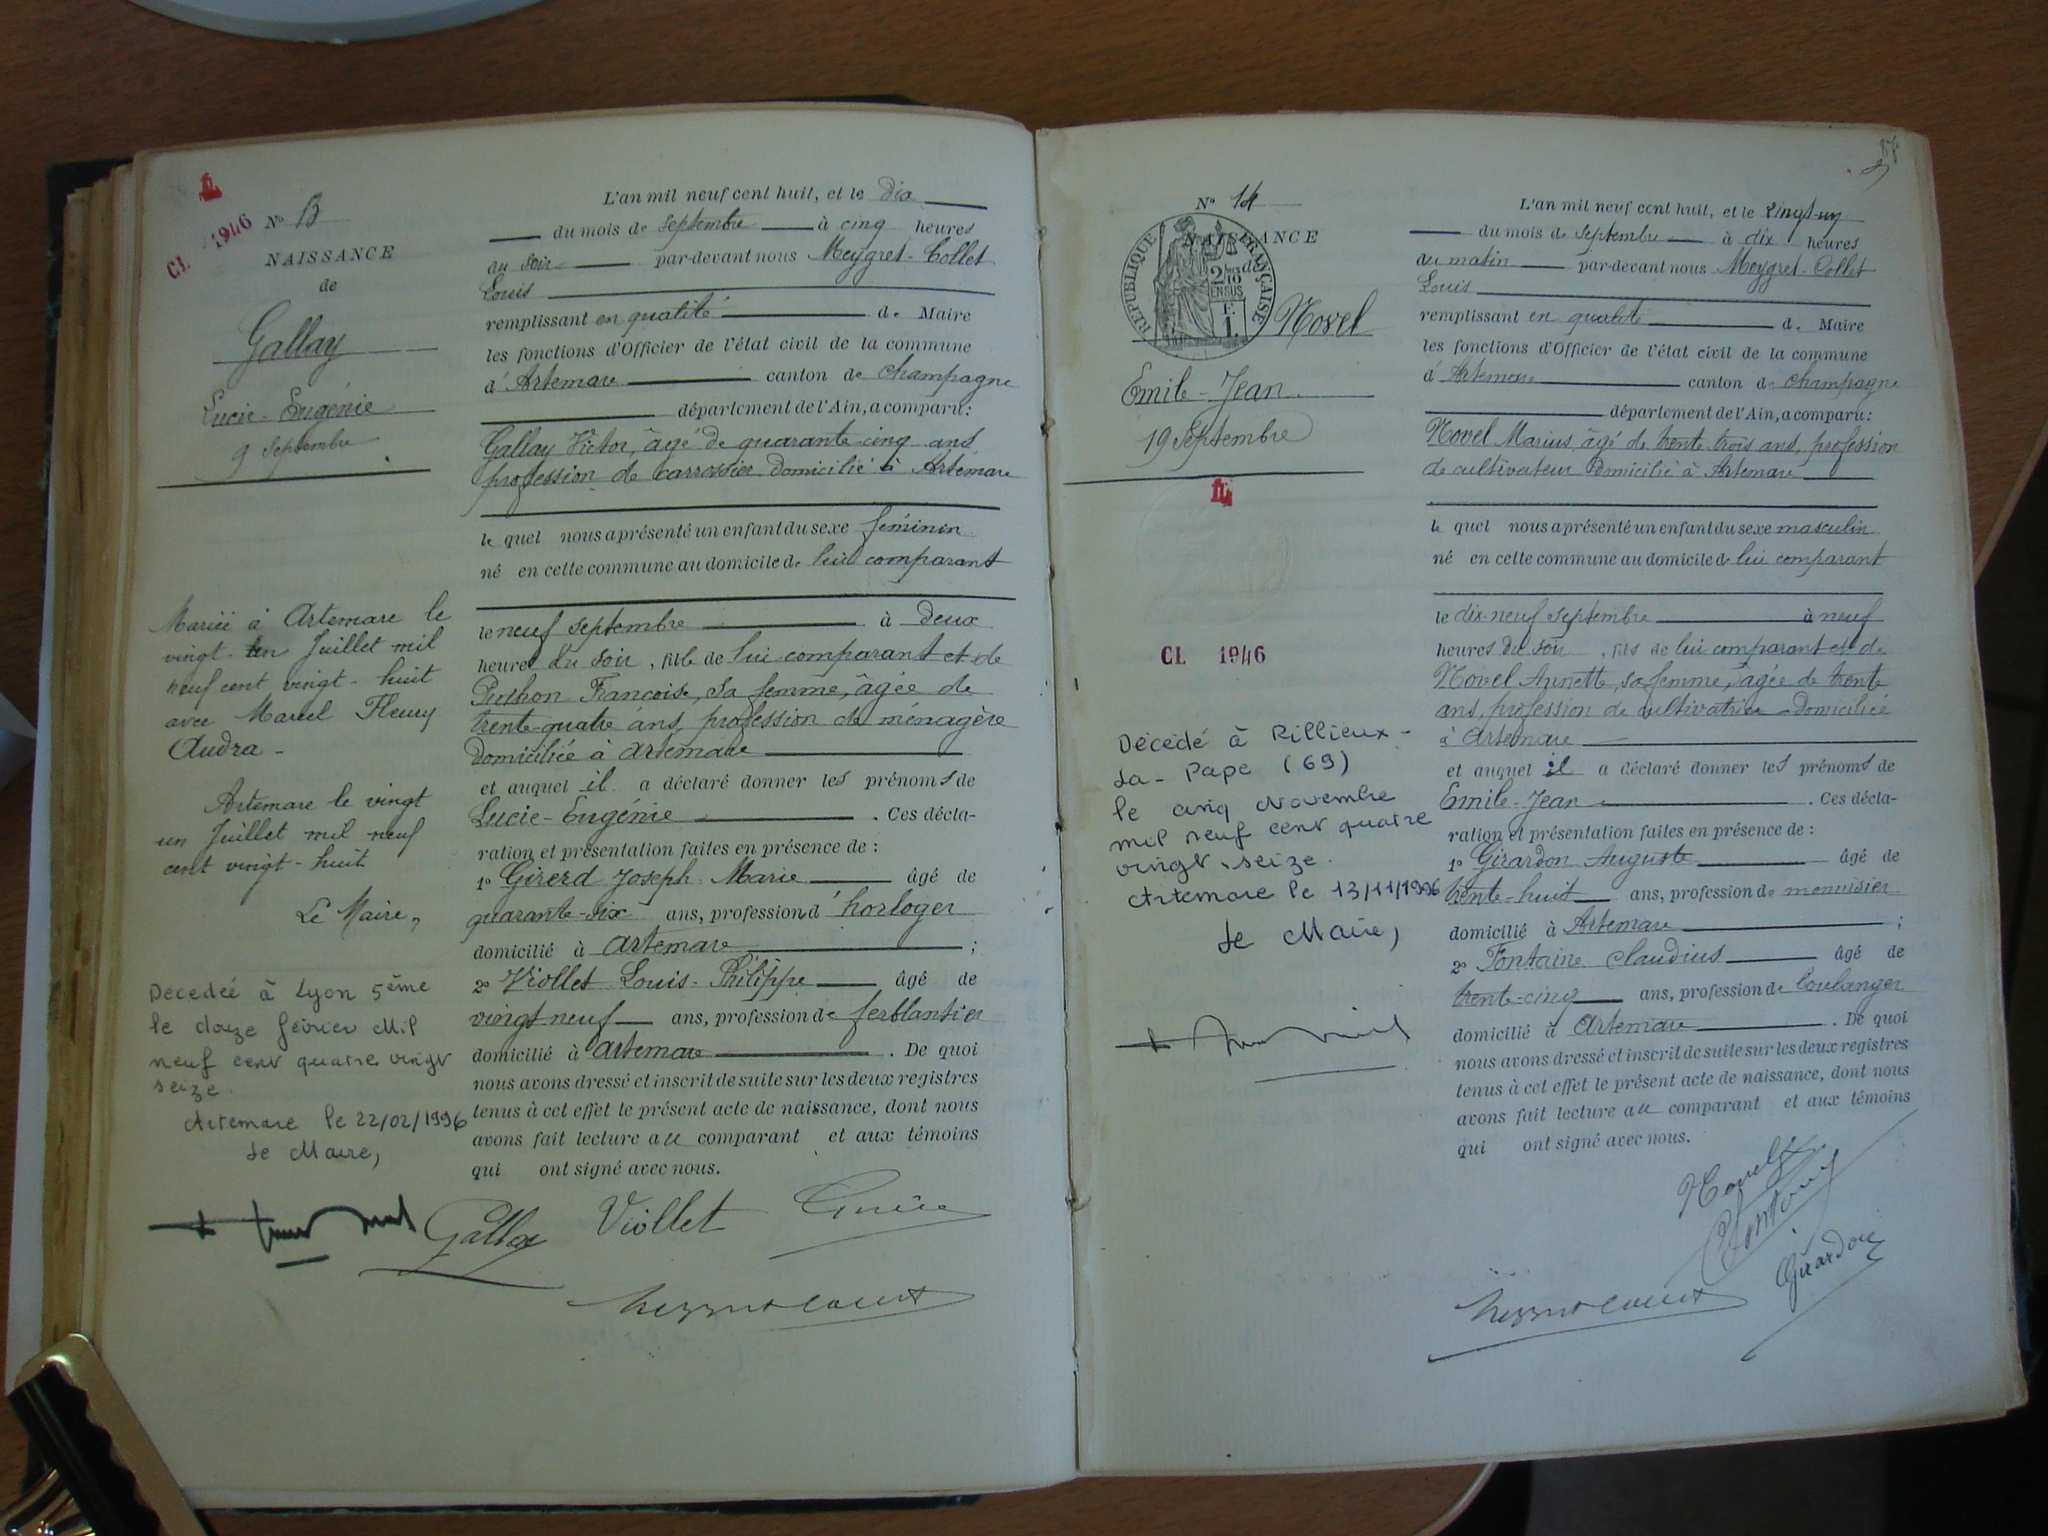 1946
CL
Nº 13
NAISSANCE
de
Gallay
Lucie-Eugénie
9 Septembre
Mariée à Artemare le
vingt-un Juillet mil
neuf cent vingt-huit
avec Marcel Fleury
Audra -
Artemare le vingt
un Juillet mil neuf
cent vingt-huit
Le Maire,
Decedée à Lyon 5ème
le douze février Mil
neuf cent quatre vingt
seize.
Artemare le 22/02/1996
Le Maire,
L'an mil neuf cent huit, et le dix
du mois de septembre à cinq heures
du soir par-devant nous Meygret-Collet
Louis
remplissant en qualité de Maire
les fonctions d'Officier de l'état civil de la commune
d'Artemare canton de Champagne
département de l'Ain, a comparu:
Gallay Victor, âgé de quarante-cinq ans
profession de carrossier domicilié à Artemare
le quel nous a présenté un enfant du sexe féminin
né en cette commune au domicile de lui comparant
le neuf septembre à deux
heures du soir, fille de lui comparant et de
Perthon Francoise, sa femme, âgée de
trente-quatre ans, profession de ménagère
domiciliée à Artemare
et auquel il a déclaré donner les prénoms de
Lucie-Eugénie. Ces décla-
ration et présentation faites en présence de :
1º Girerd Joseph-Marie âgé de
quarante-six ans, profession d'horloger
domicilié à Artemare ;
2º Viollet Louis-Philippe âgé de
vingt-neuf ans, profession de ferblantier
domicilié à Artemare. De quoi
nous avons dressé et inscrit de suite sur les deux registres
tenus à cet effet le présent acte de naissance, dont nous
avons fait lecture au comparant et aux témoins
qui ont signé avec nous.
Gallay Viollet
Nº 14
NAISSANCE
de
RÉPUBLIQUE FRANÇAISE
2/10 EN SUS
F. 1.
Novel
Emile-Jean
19 Septembre
CL 1946
Décédé à Rillieux-
La-Pape (69)
le cinq Novembre
mil neuf cent quatre
vingt-seize.
Artemare le 13/11/1996
Le Maire,
L'an mil neuf cent huit, et le vingt-un
du mois de septembre à dix heures
du matin par-devant nous Meygret-Collet
Louis
remplissant en qualité de Maire
les fonctions d'Officier de l'état civil de la commune
d'Artemare canton de Champagne
département de l'Ain, a comparu:
Novel Marius, âgé de trente-trois ans, profession
de cultivateur domicilié à Artemare
le quel nous a présenté un enfant du sexe masculin
né en cette commune au domicile de lui comparant
le dix-neuf septembre à neuf
heures du soir, fils de lui comparant et de
Novel Annette, sa femme, âgée de trente
ans, profession de cultivatrice domiciliée
à Artemare
et auquel il a déclaré donner les prénoms de
Emile-Jean. Ces décla-
ration et présentation faites en présence de :
1º Girardon Auguste âgé de
trente-huit ans, profession de menuisier
domicilié à Artemare ;
2º Fontaine Claudius âgé de
trente-cinq ans, profession de boulanger
domicilié à Artemare. De quoi
nous avons dressé et inscrit de suite sur les deux registres
tenus à cet effet le présent acte de naissance, dont nous
avons fait lecture au comparant et aux témoins
qui ont signé avec nous.
Novel
Girardon